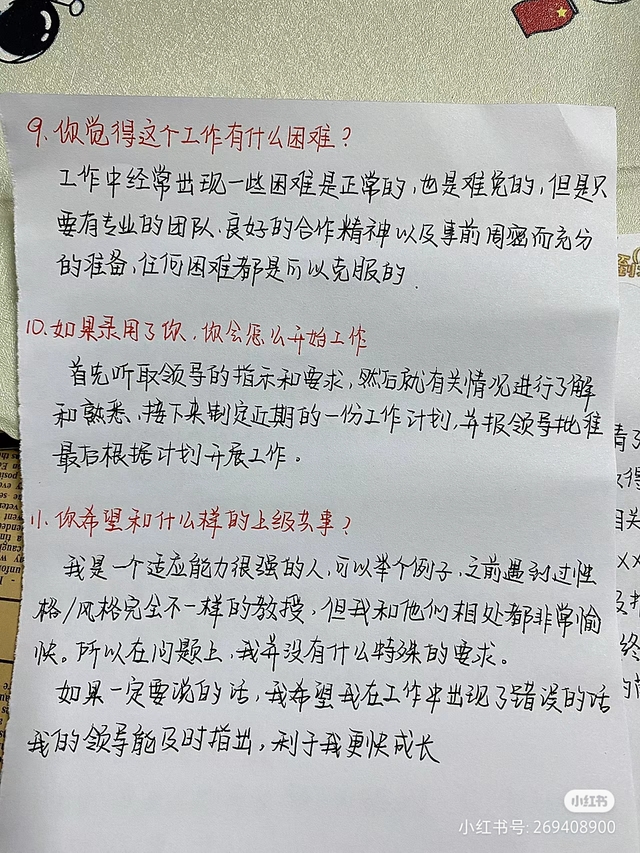 9.你觉得这个工作有什么困难？
工作中经常出现一些困难是正常的，也是难免的，但是只
要有专业的团队、良好的合作精神以及事前周密而充分
的准备，任何困难都是可以克服的.
10.如果录用了你，你会怎么开始工作
首先听取领导的指示和要求，然后就有关情况进行了解
和熟悉，接下来制定近期的一份工作计划，并报领导批准
最后根据计划开展工作。
11.你希望和什么样的上级共事？
我是一个适应能力很强的人，可以举个例子，之前遇到过性
格/风格完全不一样的教授，但我和他们相处都非常愉
快。所以在问题上，我并没有什么特殊的要求。
如果一定要说的话，我希望我在工作中出现了错误的话
我的领导能及时指出，利于我更快成长
小红书
小红书号：269408900